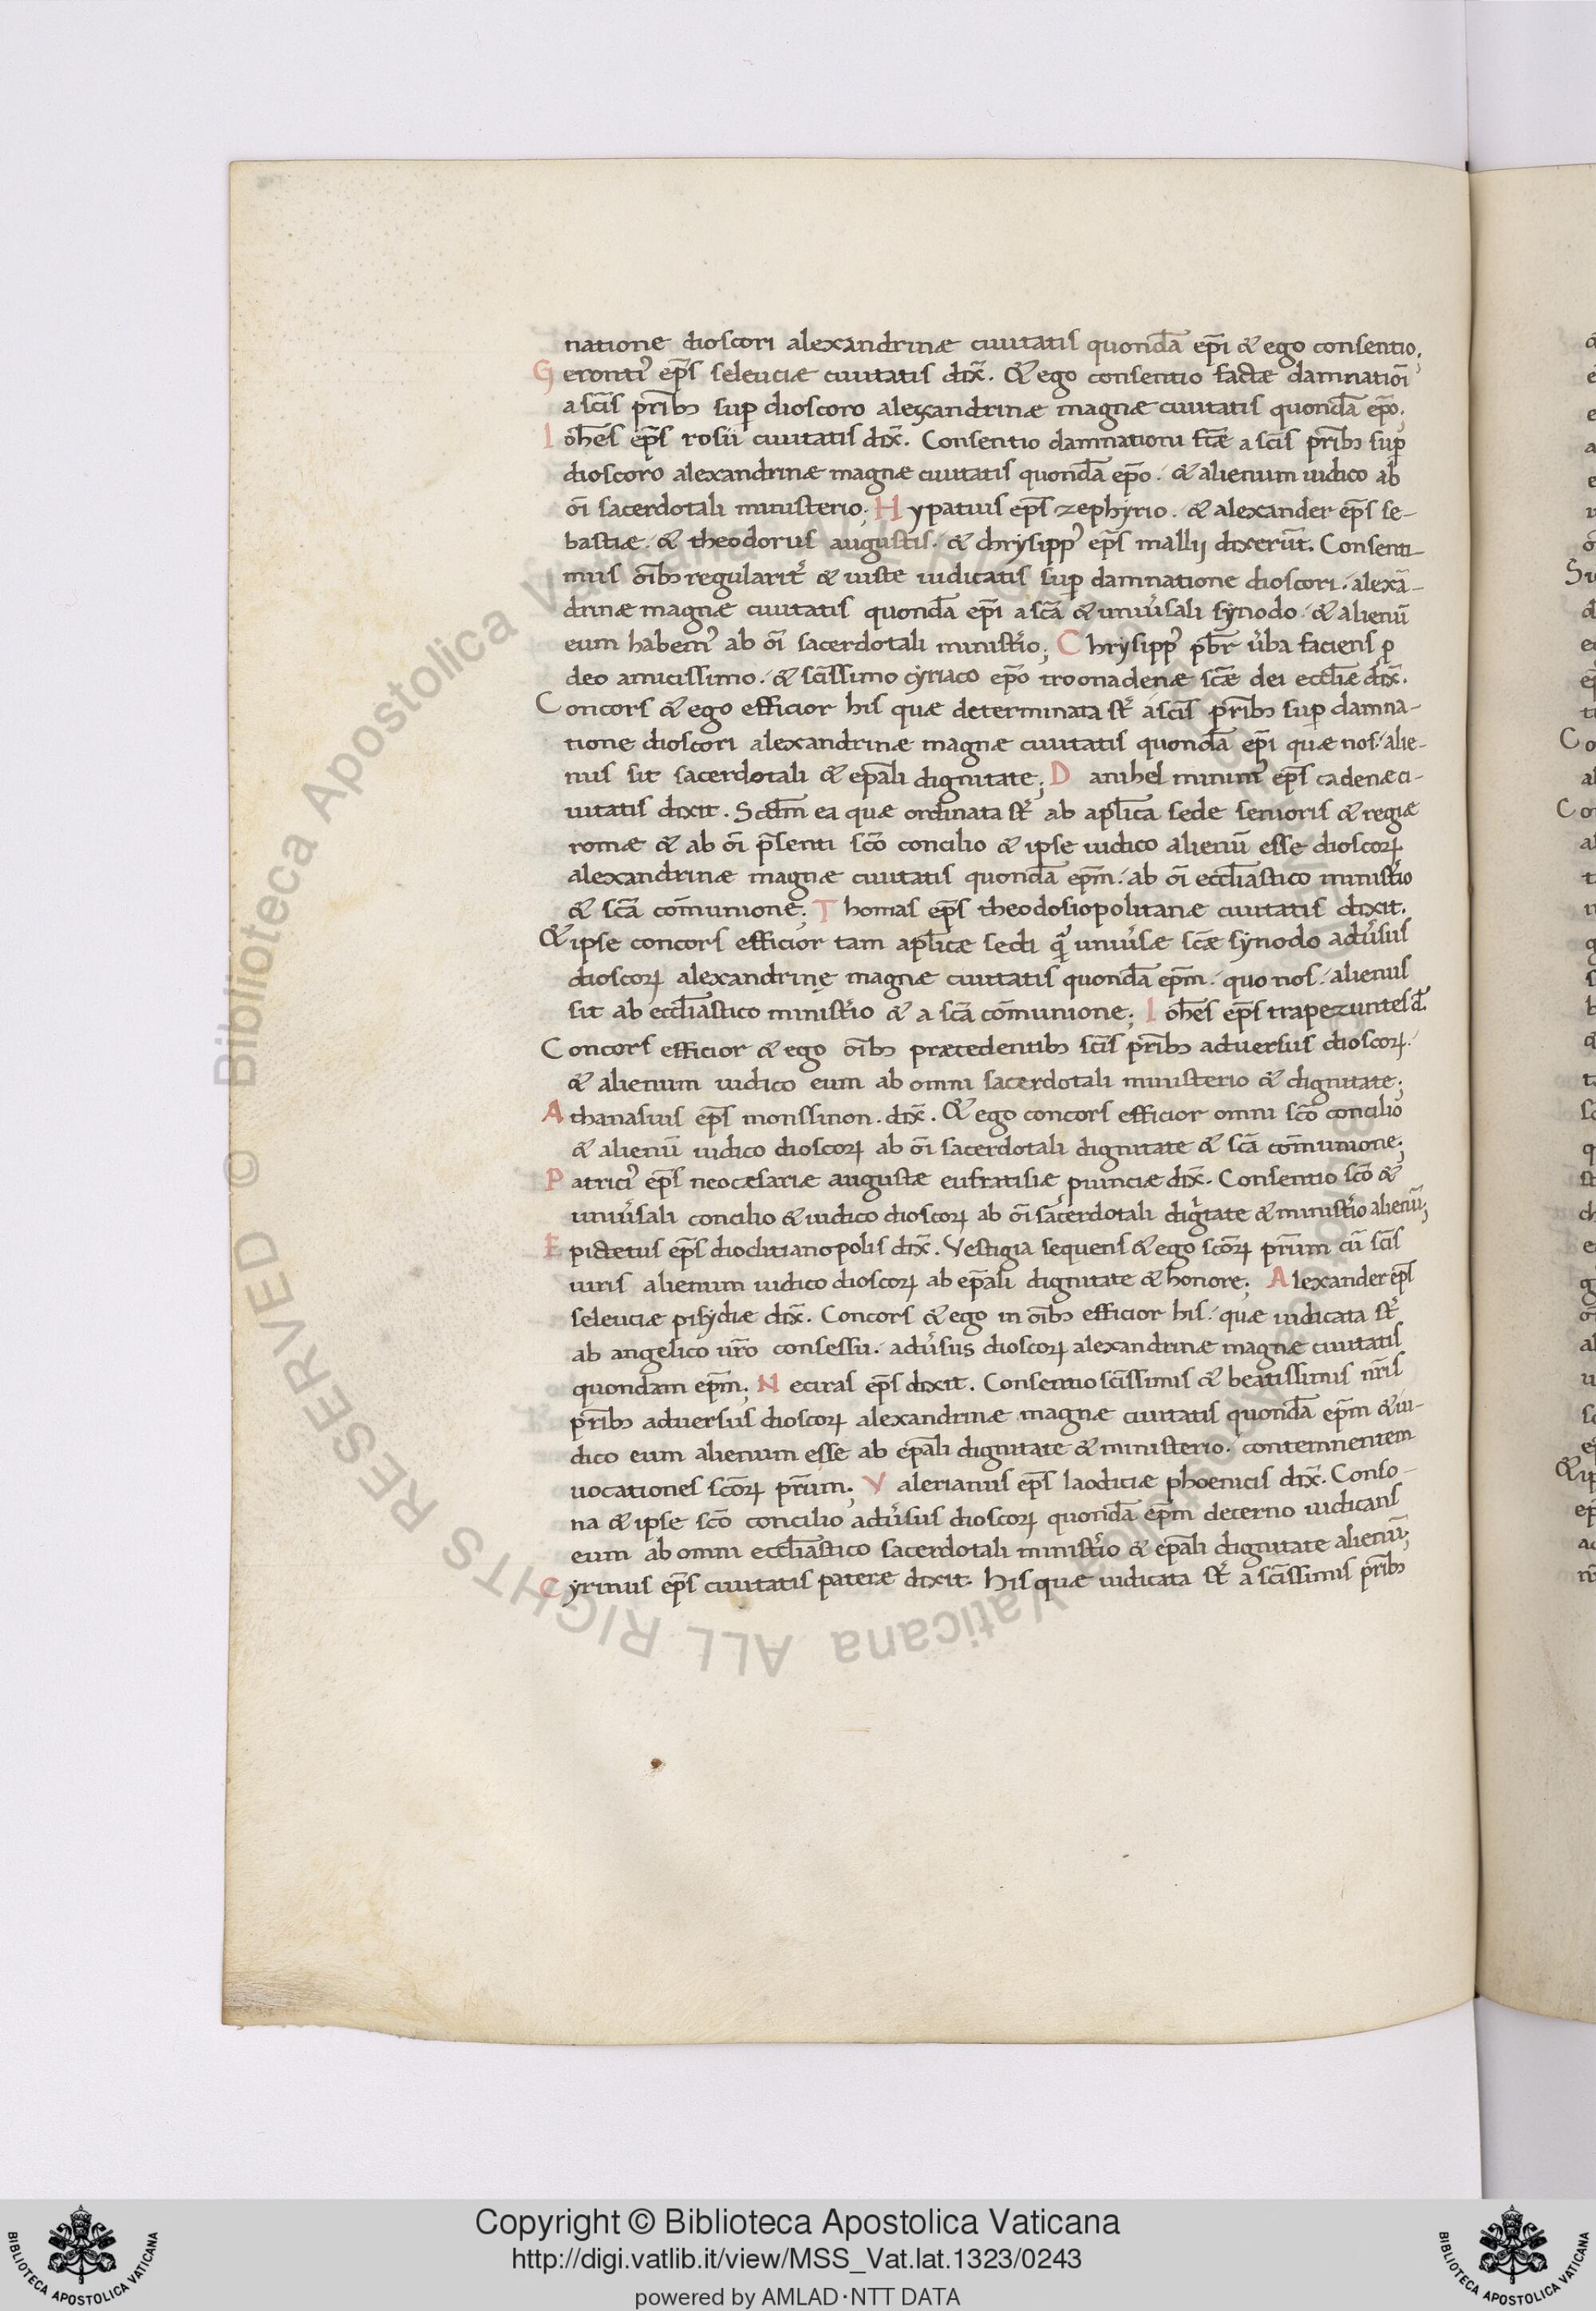 natione dioscori alexandrinæ ciuitatis quondā ep̄i & ego consentio;
Geronti᾽ ep̄s seleuciæ ciuitatis dix̄. & ego consentio factæ damnatiōi
a sc̄is pr̄ibꝫ suꝑ dioscoro alexandrinæ magnæ ciuitatis quondā ep̄o;
Ioh̄es ep̄s rosii ciuitatis dix̄. Consentio damnationi fc̄æ a sc̄is pr̄ibꝫ suꝑ
dioscoro alexandrinæ magnæ ciuitatis quondā ep̄o. & alienum iudico ab
ōi sacerdotali ministerio; Hypatius ep̄s zephyrio. & alexander ep̄s se-
bastiæ. & theodorus augustis. & chrysipp᾽ ep̄s mallij dixerūt. Consenti-
mus ōibꝫ regularit᾽ & iuste iudicatis suꝑ damnatione dioscori. alexā-
drinæ magnæ ciuitatis quondā ep̄i a sc̄a & uniu᾽sali synodo. & alienū
eum habem᾽ ab ōi sacerdotali minist᾽io; Chrysipp᾽ pb̄r u᾽ba faciens ꝓ
deo amicissimo. & sc̄issimo cyriaco ep̄o troonadenæ sc̄æ dei eccl̄iæ dix̄.
Concors & ego efficior his quæ determinata st᾽ a sc̄is pr̄ibꝫ suꝑ damna-
tione dioscori alexandrinæ magnæ ciuitatis quondā ep̄i quæ nos. alie-
nus sit sacerdotali & ep̄ali dignitate; Danihel minim᾽ ep̄s cadenæ ci-
uitatis dixit. Scd̄m ea quæ ordinata st᾽ ab apl̄ica sede senioris & regiæ
romæ & ab ōi p̄senti sc̄o concilio & ipse iudico alienū esse dioscoꝝ
alexandrinæ magnæ ciuitatis quondā ep̄m. ab ōi eccl̄iastico minist᾽io
& sc̄a cōmunione; Thomas ep̄s theodosiopolitanæ ciuitatis dixit.
& ipse concors efficior tam apl̄icæ sedi q̄ᷓ uniu᾽sæ sc̄æ synodo adu᾽sus
dioscoꝝ alexandrinę magnæ ciuitatis quondā ep̄m. quo nos. alienus
sit ab eccl̄iastico minist᾽io & a sc̄a cōmunione; Ioh̄es ep̄s trapezuntes d̄.
Concors efficior & ego ōibꝫ præcedentibꝫ sc̄is pr̄ibꝫ aduersus dioscoꝝ.
& alienum iudico eum ab omni sacerdotali ministerio & dignitate;
Athanasius ep̄s monssinon. dix̄. & ego concors efficior omni sc̄o concilio
& alienū iudico dioscoꝝ ab ōi sacerdotali dignitate & sc̄a cōmunione;
Patrici᾽ ep̄s neocæsariæ augustæ eufratisiæ ꝓuinciæ dix̄. Consentio sc̄o &
uniu᾽sali concilio & iudico dioscoꝝ ab ōi sacerdotali dig᾽tate & minist᾽io alienū;
Epictetus ep̄s dioclitianopolis dix̄. Vestigia sequens & ego sc̄oꝝ pr̄um cū sc̄is
uiris alienum iudico dioscoꝝ ab ep̄ali dignitate & honore; Alexander ep̄s
seleuciæ pisydiæ dix̄. Concors & ego in ōibꝫ efficior his. quæ iudicata st᾽
ab angelico ur̄o consessu. adu᾽sus dioscoꝝ alexandrinæ magnæ ciuitatis
quondam ep̄m; Neciras ep̄s dixit. Consentio sc̄issimis & beatissimis nr̄is
pr̄ibꝫ aduersus dioscoꝝ alexandrinæ magnæ ciuitatis quondā ep̄m & iu-
dico eum alienum esse ab ep̄ali dignitate & ministerio. contemnentem
uocationes sc̄oꝝ pr̄um; Valerianus ep̄s laodiciæ phoenicis dix̄. Conso-
na & ipse sc̄o concilio adu᾽sus dioscoꝝ quondā ep̄m decerno iudicans
eum ab omni eccl̄iastico sacerdotali minist᾽io & ep̄ali dignitate alienū;
Cyrinus ep̄s ciuitatis pateræ dixit. His quæ iudicata st᾽ a sc̄issimis pr̄ibꝫ
© Biblioteca Apostolica Vaticana ALL RIGHTS RESERVED
Copyright © Biblioteca Apostolica Vaticana
http://digi.vatlib.it/view/MSS_Vat.lat.1323/0243
powered by AMLAD·NTT DATA
BIBLIOTECA APOSTOLICA VATICANA
BIBLIOTECA APOSTOLICA VATICANA